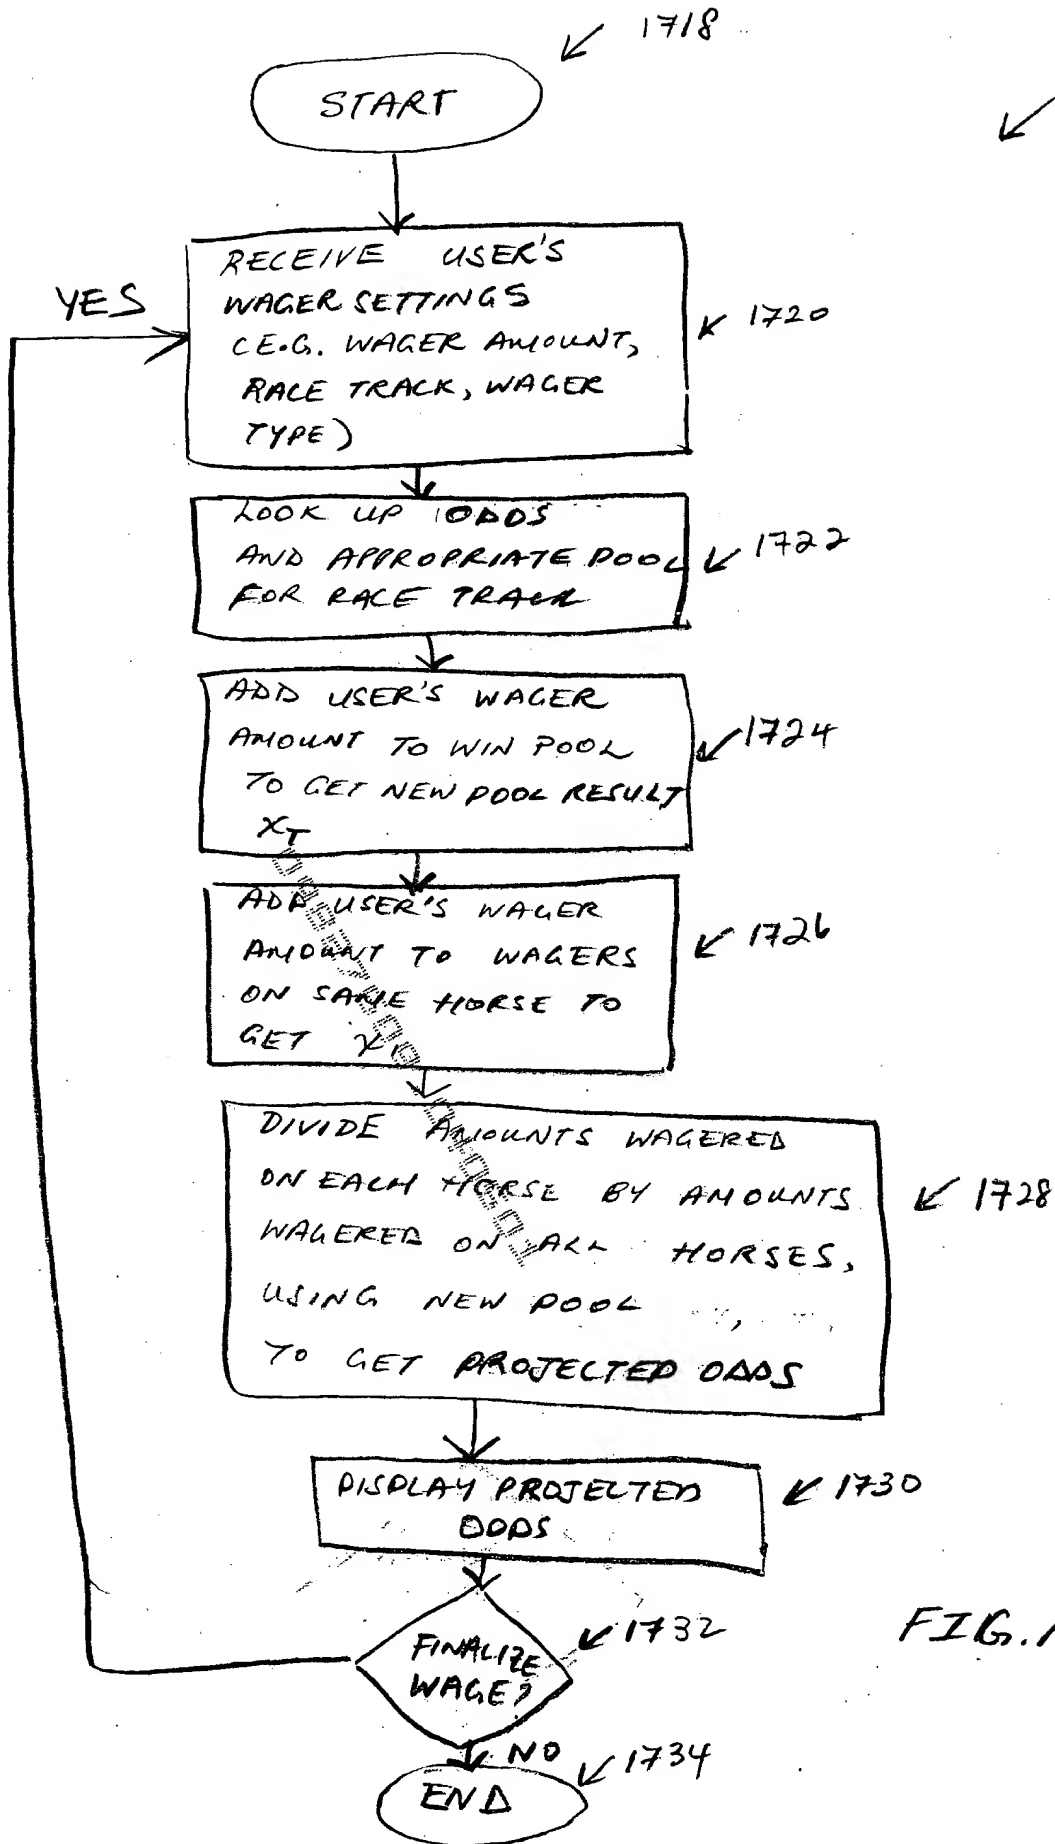 1718
START
YES
RECEIVE USER'S
WAGER SETTINGS
(E.G. WAGER AMOUNT,
RACE TRACK, WAGER
TYPE)
1720
LOOK UP ODDS
AND APPROPRIATE POOL
FOR RACE TRACK
1722
ADD USER'S WAGER
AMOUNT TO WIN POOL
TO GET NEW POOL RESULT
X_T
1724
ADD USER'S WAGER
AMOUNT TO WAGERS
ON SAME HORSE TO
GET X
1726
DIVIDE AMOUNTS WAGERED
ON EACH HORSE BY AMOUNTS
WAGERED ON ALL HORSES,
USING NEW POOL
TO GET PROJECTED ODDS
1728
DISPLAY PROJECTED
ODDS
1730
FINALIZE
WAGE?
1732
FIG. 1
NO
1734
END